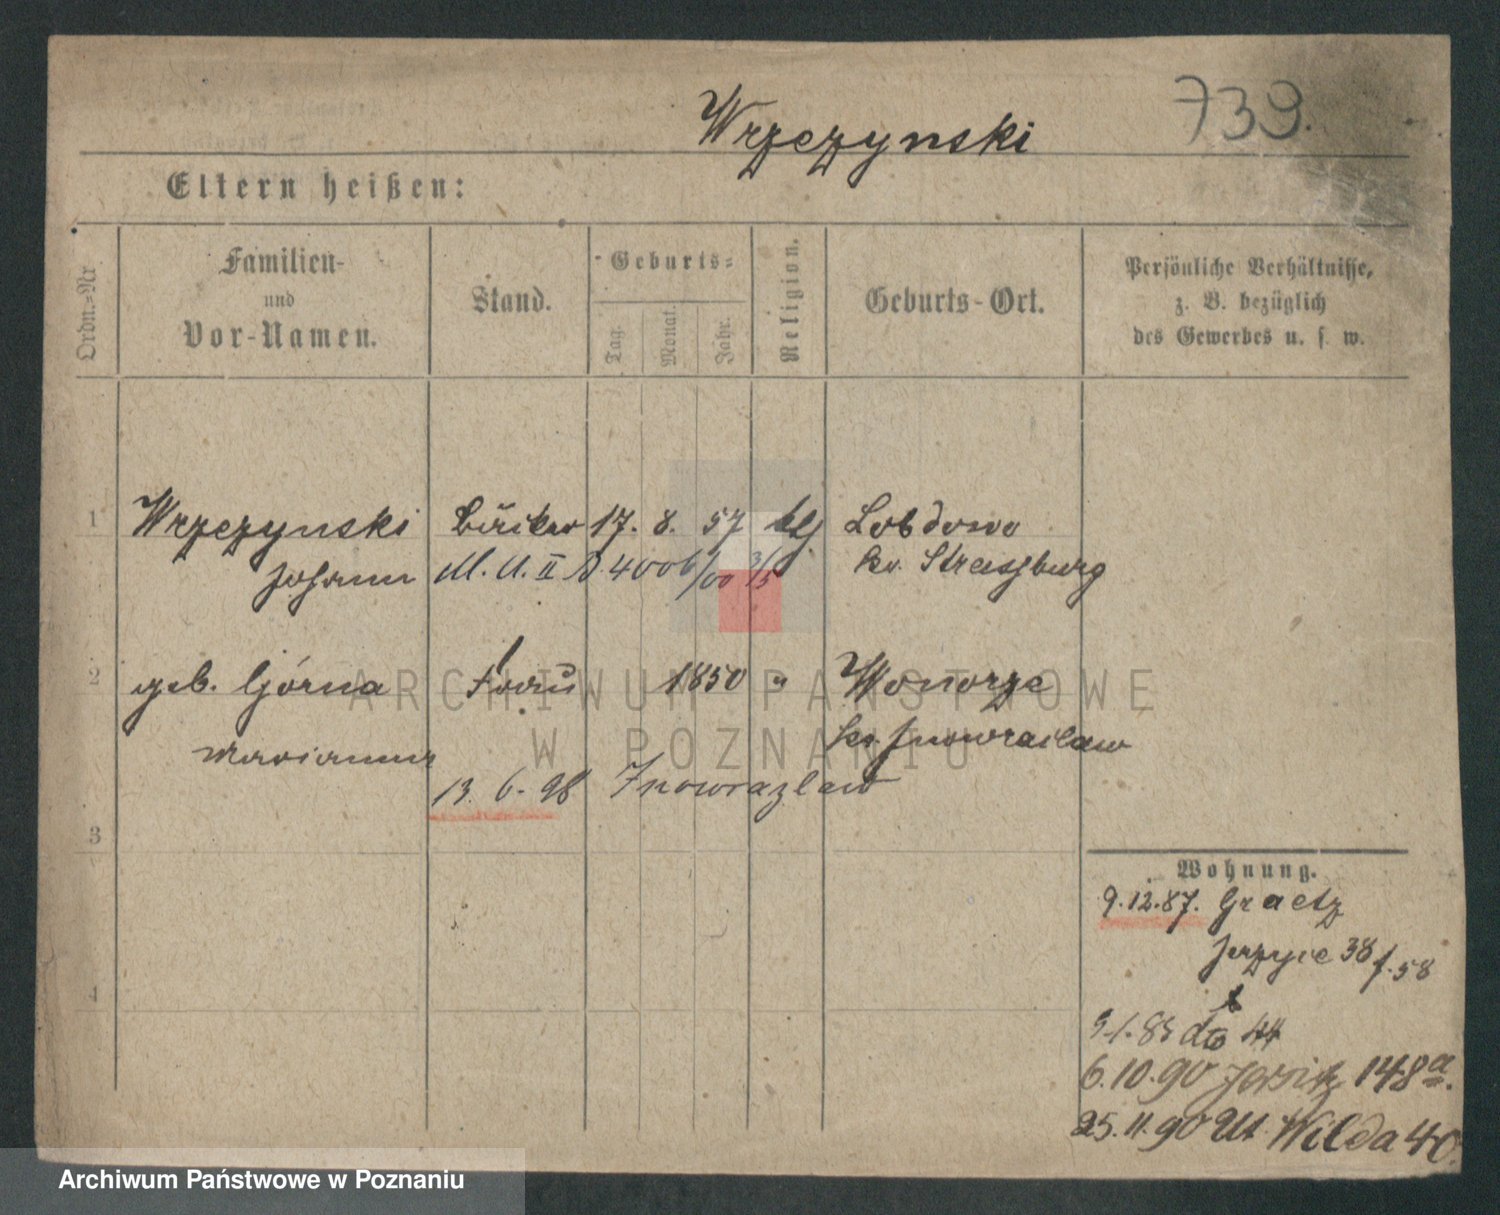 Wrzczynski 739.
Eltern heißen:
Ordn.-Nr
Familien-
und
Vor-Namen.
Stand.
Geburts-
Tag.
Monat.
Jahr.
Religion.
Geburts-Ort.
Persönliche Verhältnisse,
z. B. bezüglich
des Gewerbes u. s. w.
1 Wrzczynski 17. 8. 57 Lobdowo
Johann M. U. II 4006/00 3/5 Kr. Strassburg
2 geb. Górna Frau 1850 " Wonorze
Marianna Kr. Inowraclaw
13. 6. 98 Inowrazlaw
3
4
Wohnung.
9.12.87. Graetz
Jerzyce 38 f. 58
dto 44
6.10.90 Jersitz 148a.
25.11.90 Ut. Wilda 40.
ARCHIWUM PAŃSTWOWE
W POZNANIU
Archiwum Państwowe w Poznaniu